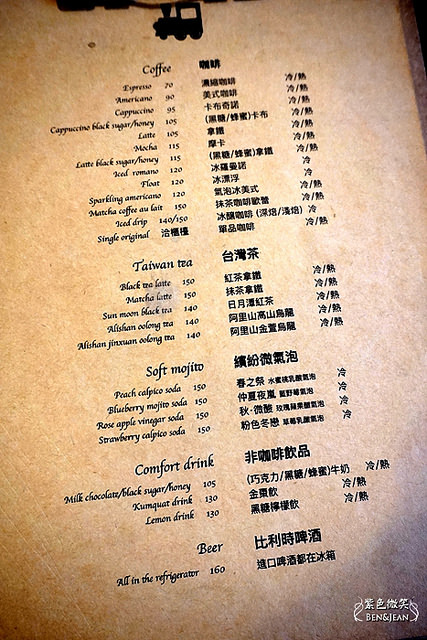 Coffee 咖啡
Espresso 70 濃縮咖啡 冷/熱
Americano 90 美式咖啡 冷/熱
Cappuccino 95 卡布奇諾 冷/熱
Cappuccino black sugar/honey 105 (黑糖/蜂蜜)卡布 冷/熱
Latte 105 拿鐵 冷/熱
Mocha 115 摩卡 冷/熱
Latte black sugar/honey 115 (黑糖/蜂蜜)拿鐵 冷/熱
Iced romano 120 冰羅曼諾 冷
Float 120 冰漂浮 冷
Sparkling americano 120 氣泡冰美式 冷/熱
Matcha coffee au lait 150 抹茶咖啡歐蕾 冷/熱
Iced drip 140/150 冰釀咖啡 (深焙/淺焙) 冷
Single original 洽櫃檯 單品咖啡 冷/熱
Taiwan tea 台灣茶
Black tea latte 150 紅茶拿鐵 冷/熱
Matcha latte 150 抹茶拿鐵 冷/熱
Sun moon black tea 140 日月潭紅茶 冷/熱
Alishan oolong tea 140 阿里山高山烏龍 冷/熱
Alishan jinxuan oolong tea 140 阿里山金萱烏龍 冷/熱
Soft mojito 繽紛微氣泡
Peach calpico soda 150 春之祭 水蜜桃乳酸氣泡 冷
Blueberry mojito soda 150 仲夏夜嵐 藍野莓氣泡 冷
Rose apple vinegar soda 150 秋·微醺 玫瑰蘋果醋氣泡 冷
Strawberry calpico soda 150 粉色冬戀 草莓乳酸氣泡 冷
Comfort drink 非咖啡飲品
Milk chocolate/black sugar/honey 105 (巧克力/黑糖/蜂蜜)牛奶 冷/熱
Kumquat drink 130 金棗飲 冷/熱
Lemon drink 130 黑糖檸檬飲 冷/熱
Beer 比利時啤酒
All in the refrigerator 160 進口啤酒都在冰箱
紫色微笑
BEN&JEAN